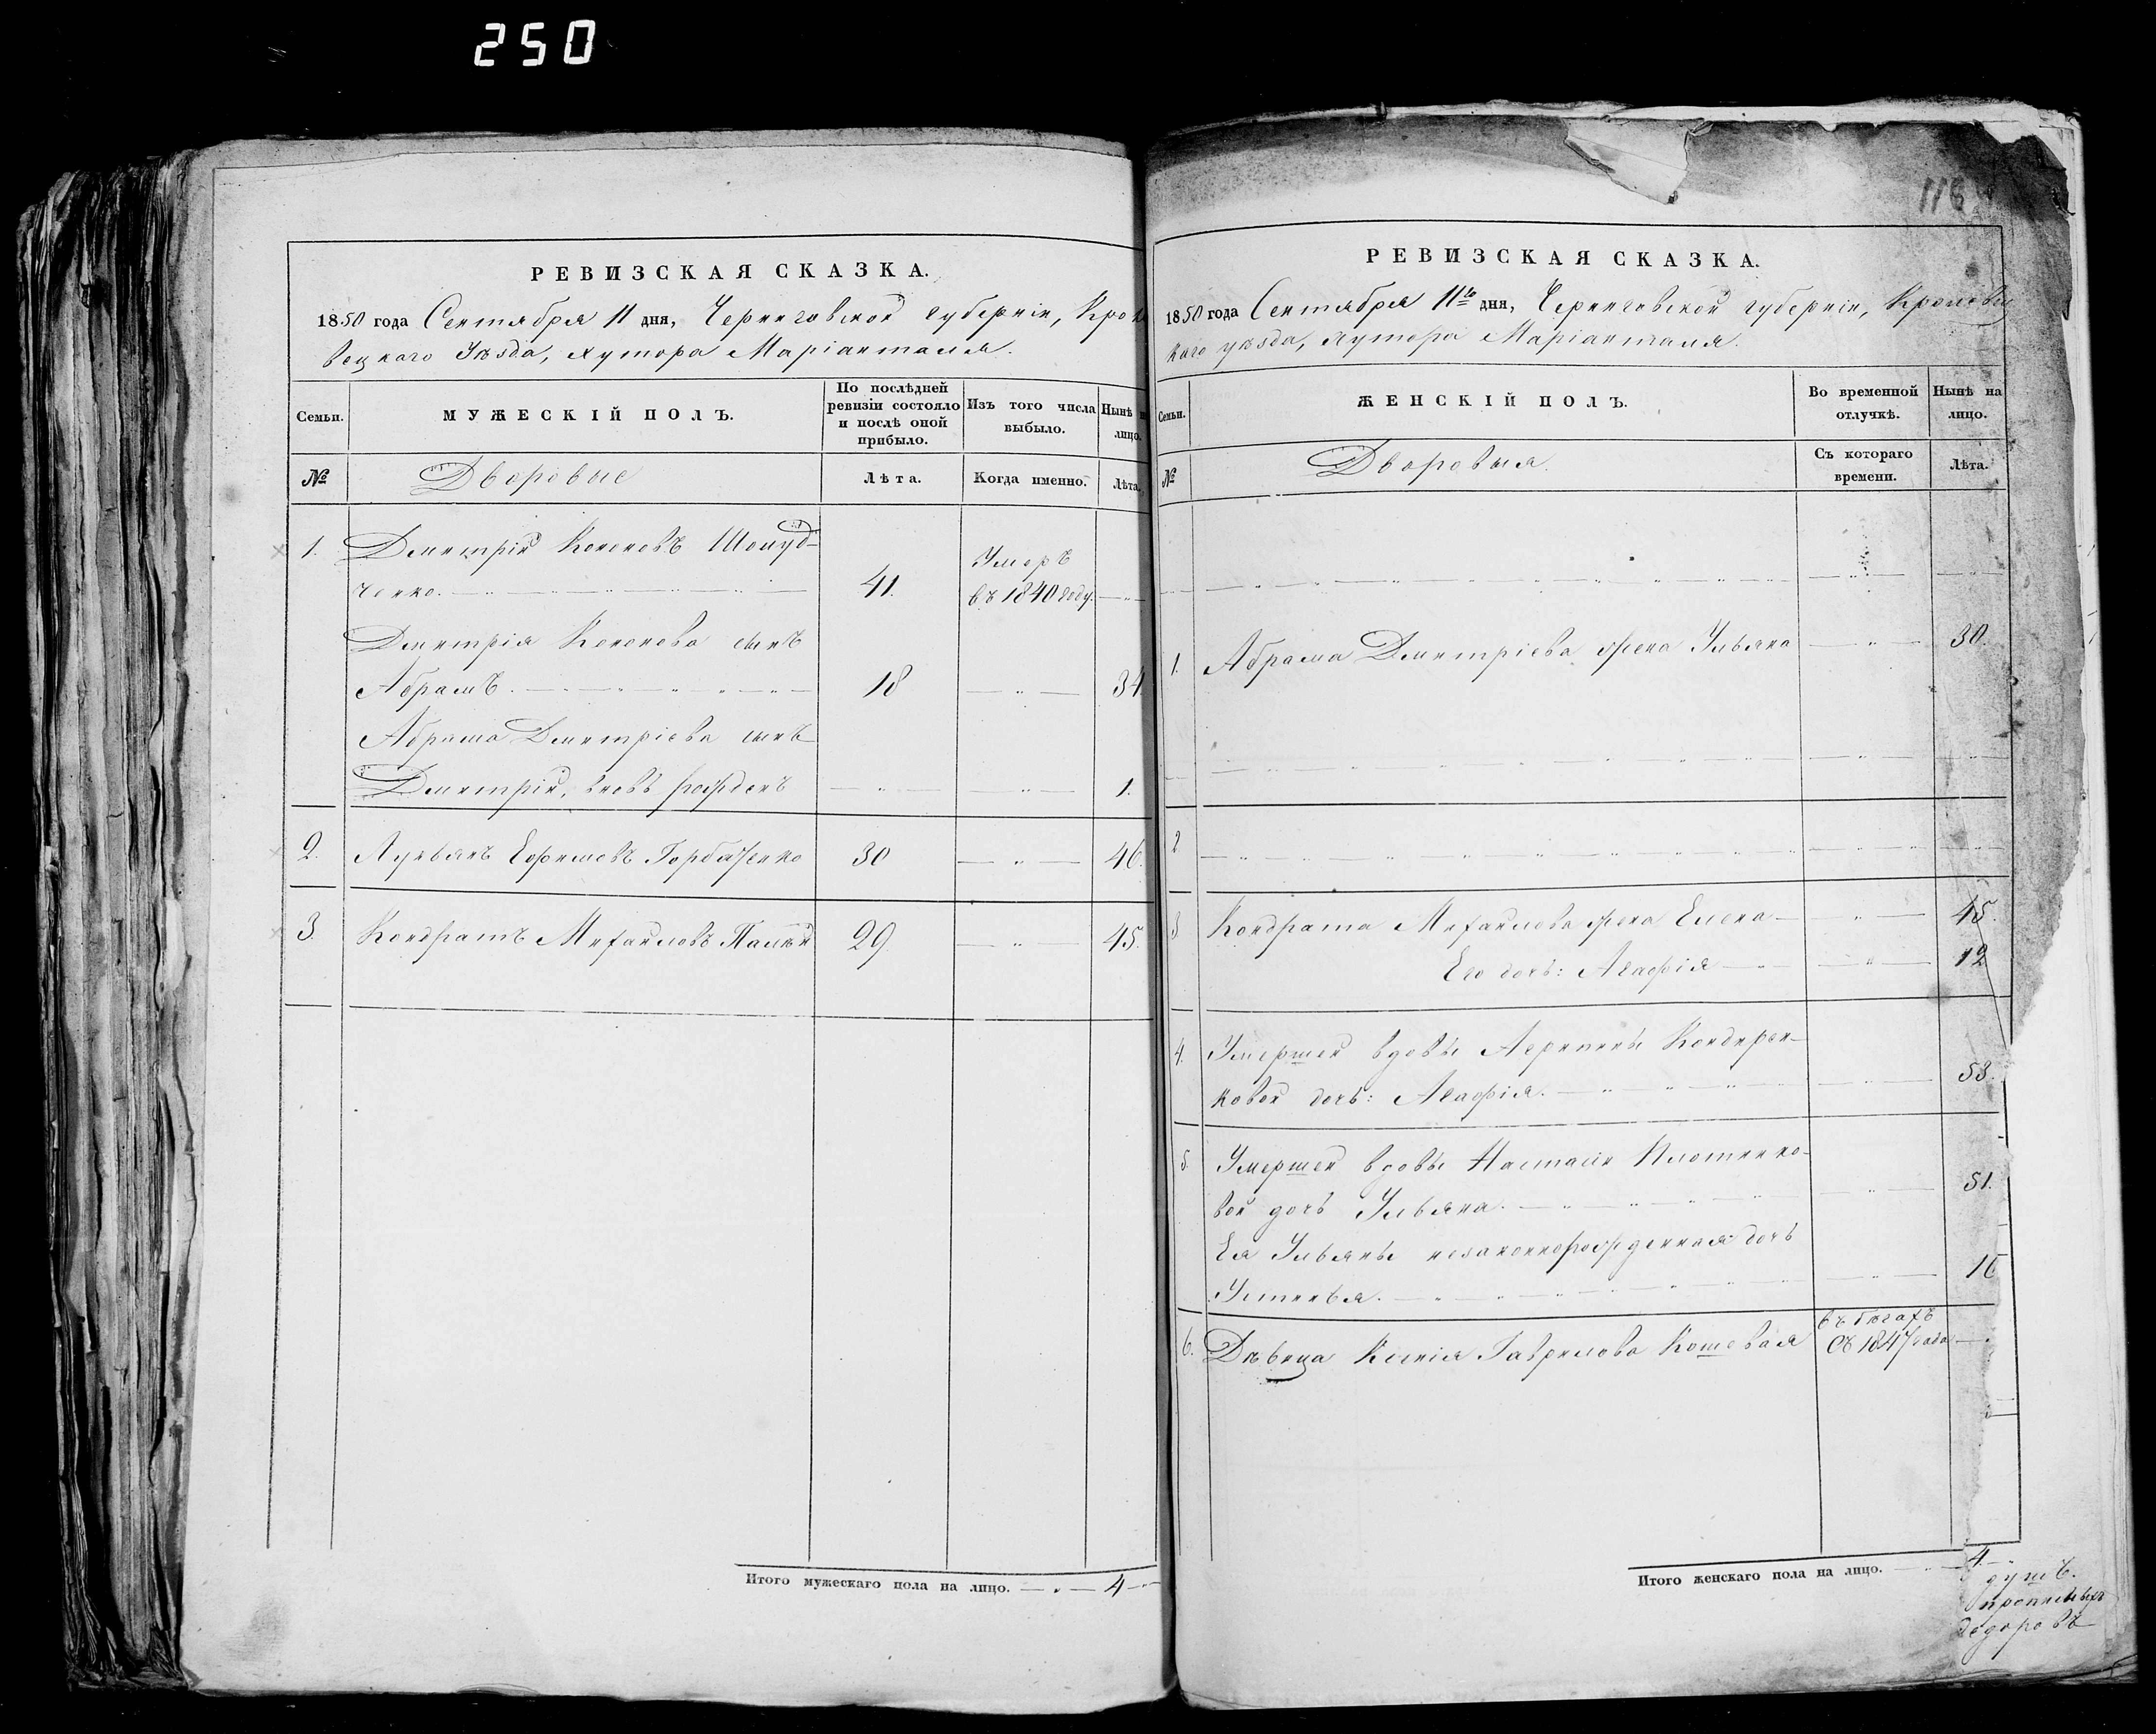 250
РЕВИЗСКАЯ СКАЗКА.
1850 года Сентября 11 дня, Черниговской губернiи, Кроле
вецкаго Уѣзда, хутора Марiанталя.
Семьи.
МУЖЕСКІЙ ПОЛЪ.
По послѣдней ревизіи состояло и послѣ оной прибыло.
Изъ того числа выбыло.
Нынѣ на лицо.
№
Дворовые
Лѣта.
Когда именно.
Лѣта.
1. Дмитрій Кононовъ
ченко. 41. Умеръ въ 1840 году.
Дмитрія Кононова сынъ
Абрамъ. 18 34.
Абрама Дмитріева сынъ
Дмитрій, вновь рожденъ 1.
2. Лукьянъ Ефимовъ Горбаченко 30 46.
3. Кондратъ Михайловъ 29. 45.
Итого мужескаго пола на лицо. 4
116
РЕВИЗСКАЯ СКАЗКА.
1850 года Сентября 11го дня, Черниговской губернiи, Кролевец
каго уѣзда, хутора Марiанталя.
Семьи.
ЖЕНСКІЙ ПОЛЪ.
Во временной отлучкѣ.
Нынѣ на лицо.
№
Дворовыя.
Съ котораго времени.
Лѣта.
1. Абрама Дмитріева жена Ульяна 30.
2
3 Кондрата Михайлова жена Елена 45.
Его дочь: Агафія 12
4. Умершей вдовы Агрипины Кондирен-
ковой дочь: Агафія. 53.
5. Умершей вдовы Настасіи Плотнико-
вой дочь Ульяна. 51.
Ея Ульяны незаконнорожденная дочь
Устинья. 16
6. Дѣвица Ксенія Гаврилова Кошевая въ бѣгахъ
съ 1847 года
Итого женскаго пола на лицо.
4.
душъ.
прописныхъ